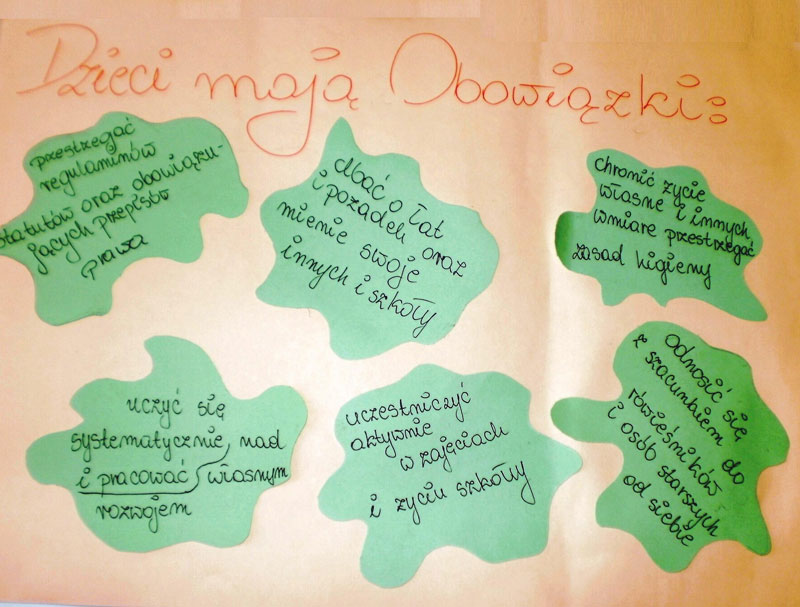 Dzieci mają Obowiązki:
przestrzegać
regulaminów
statutów oraz obowiązu-
jących przepisów
prawa
dbać o łat
i pożadek oraz
mienie swoje
innych i szkoły
chronić życie
własne i innych
wmiarę przestrzegać
zasad higieny
uczyć się
systematycznie, nad
i pracować własnym
rozwojem
uczestniczyć
aktywnie
w zajęciach
i życiu szkoły
odnosić się
z szacunkiem do
rówieśników
i osób starszych
od siebie